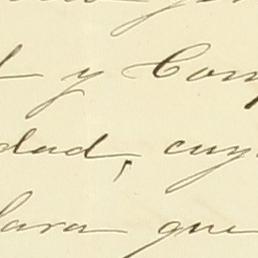 y Com
dad, cuy
lara que